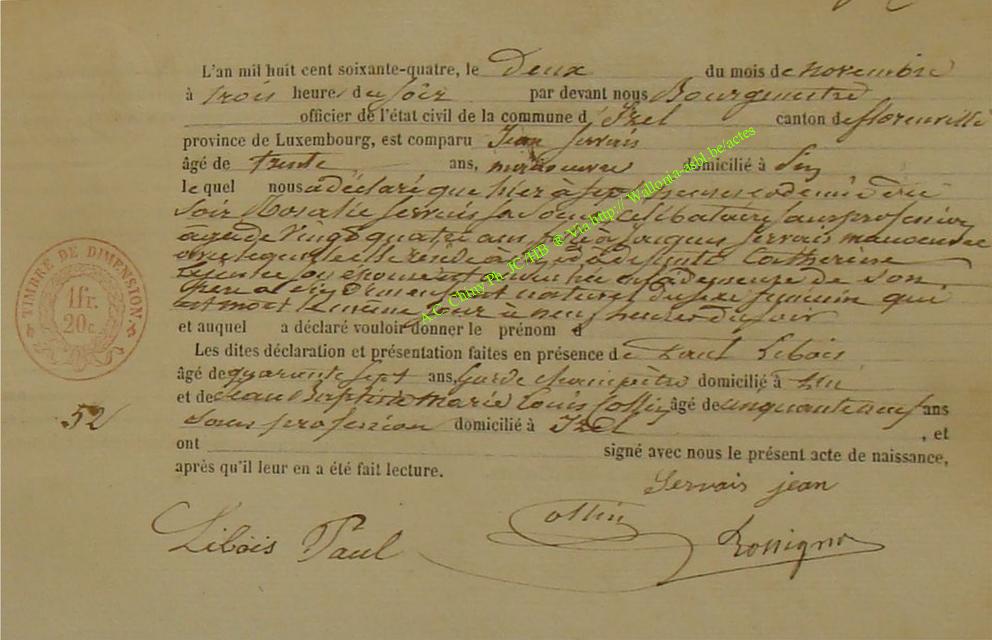 L'an mil huit cent soixante-quatre, le Deux du mois de novembre
à trois heures du soir par devant nous Bourgmestre
officier de l'état civil de la commune d'Izel canton de florenville
province de Luxembourg, est comparu Jean Servais
âgé de trente ans, manoeuvre domicilié à
le quel nous a déclaré que hier a sept heures et demie du
soir Rosalie Servais sa soeur célibataire sans profession
agée de vingt quatre ans fille à Jacques Servais manoeuvre
avec lequel elle réside et de défunte Catherine
son épouse est accouchée de son
frère a un enfant naturel du sexe féminin qui
est mort le même jour à neuf heures du soir
et auquel a déclaré vouloir donner le prénom d
Les dites déclaration et présentation faites en présence de Paul Libois
âgé de quarante sept ans, Garde champêtre domicilié à Izel
et de Jean Baptiste Marie Louis Collin âgé de cinquante neuf ans
sans profession domicilié à Izel , et
ont signé avec nous le présent acte de naissance,
après qu'il leur en a été fait lecture.
Servais jean
Libois Paul Collin Rossignon
52
TIMBRE DE DIMENSION
1 fr.
20 c.
A.C. Chiny Ph. JC/HB @ Via http:// Wallonia-asbl.be/actes